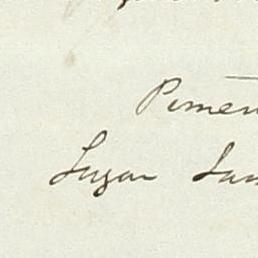 Pimen
Lugar San